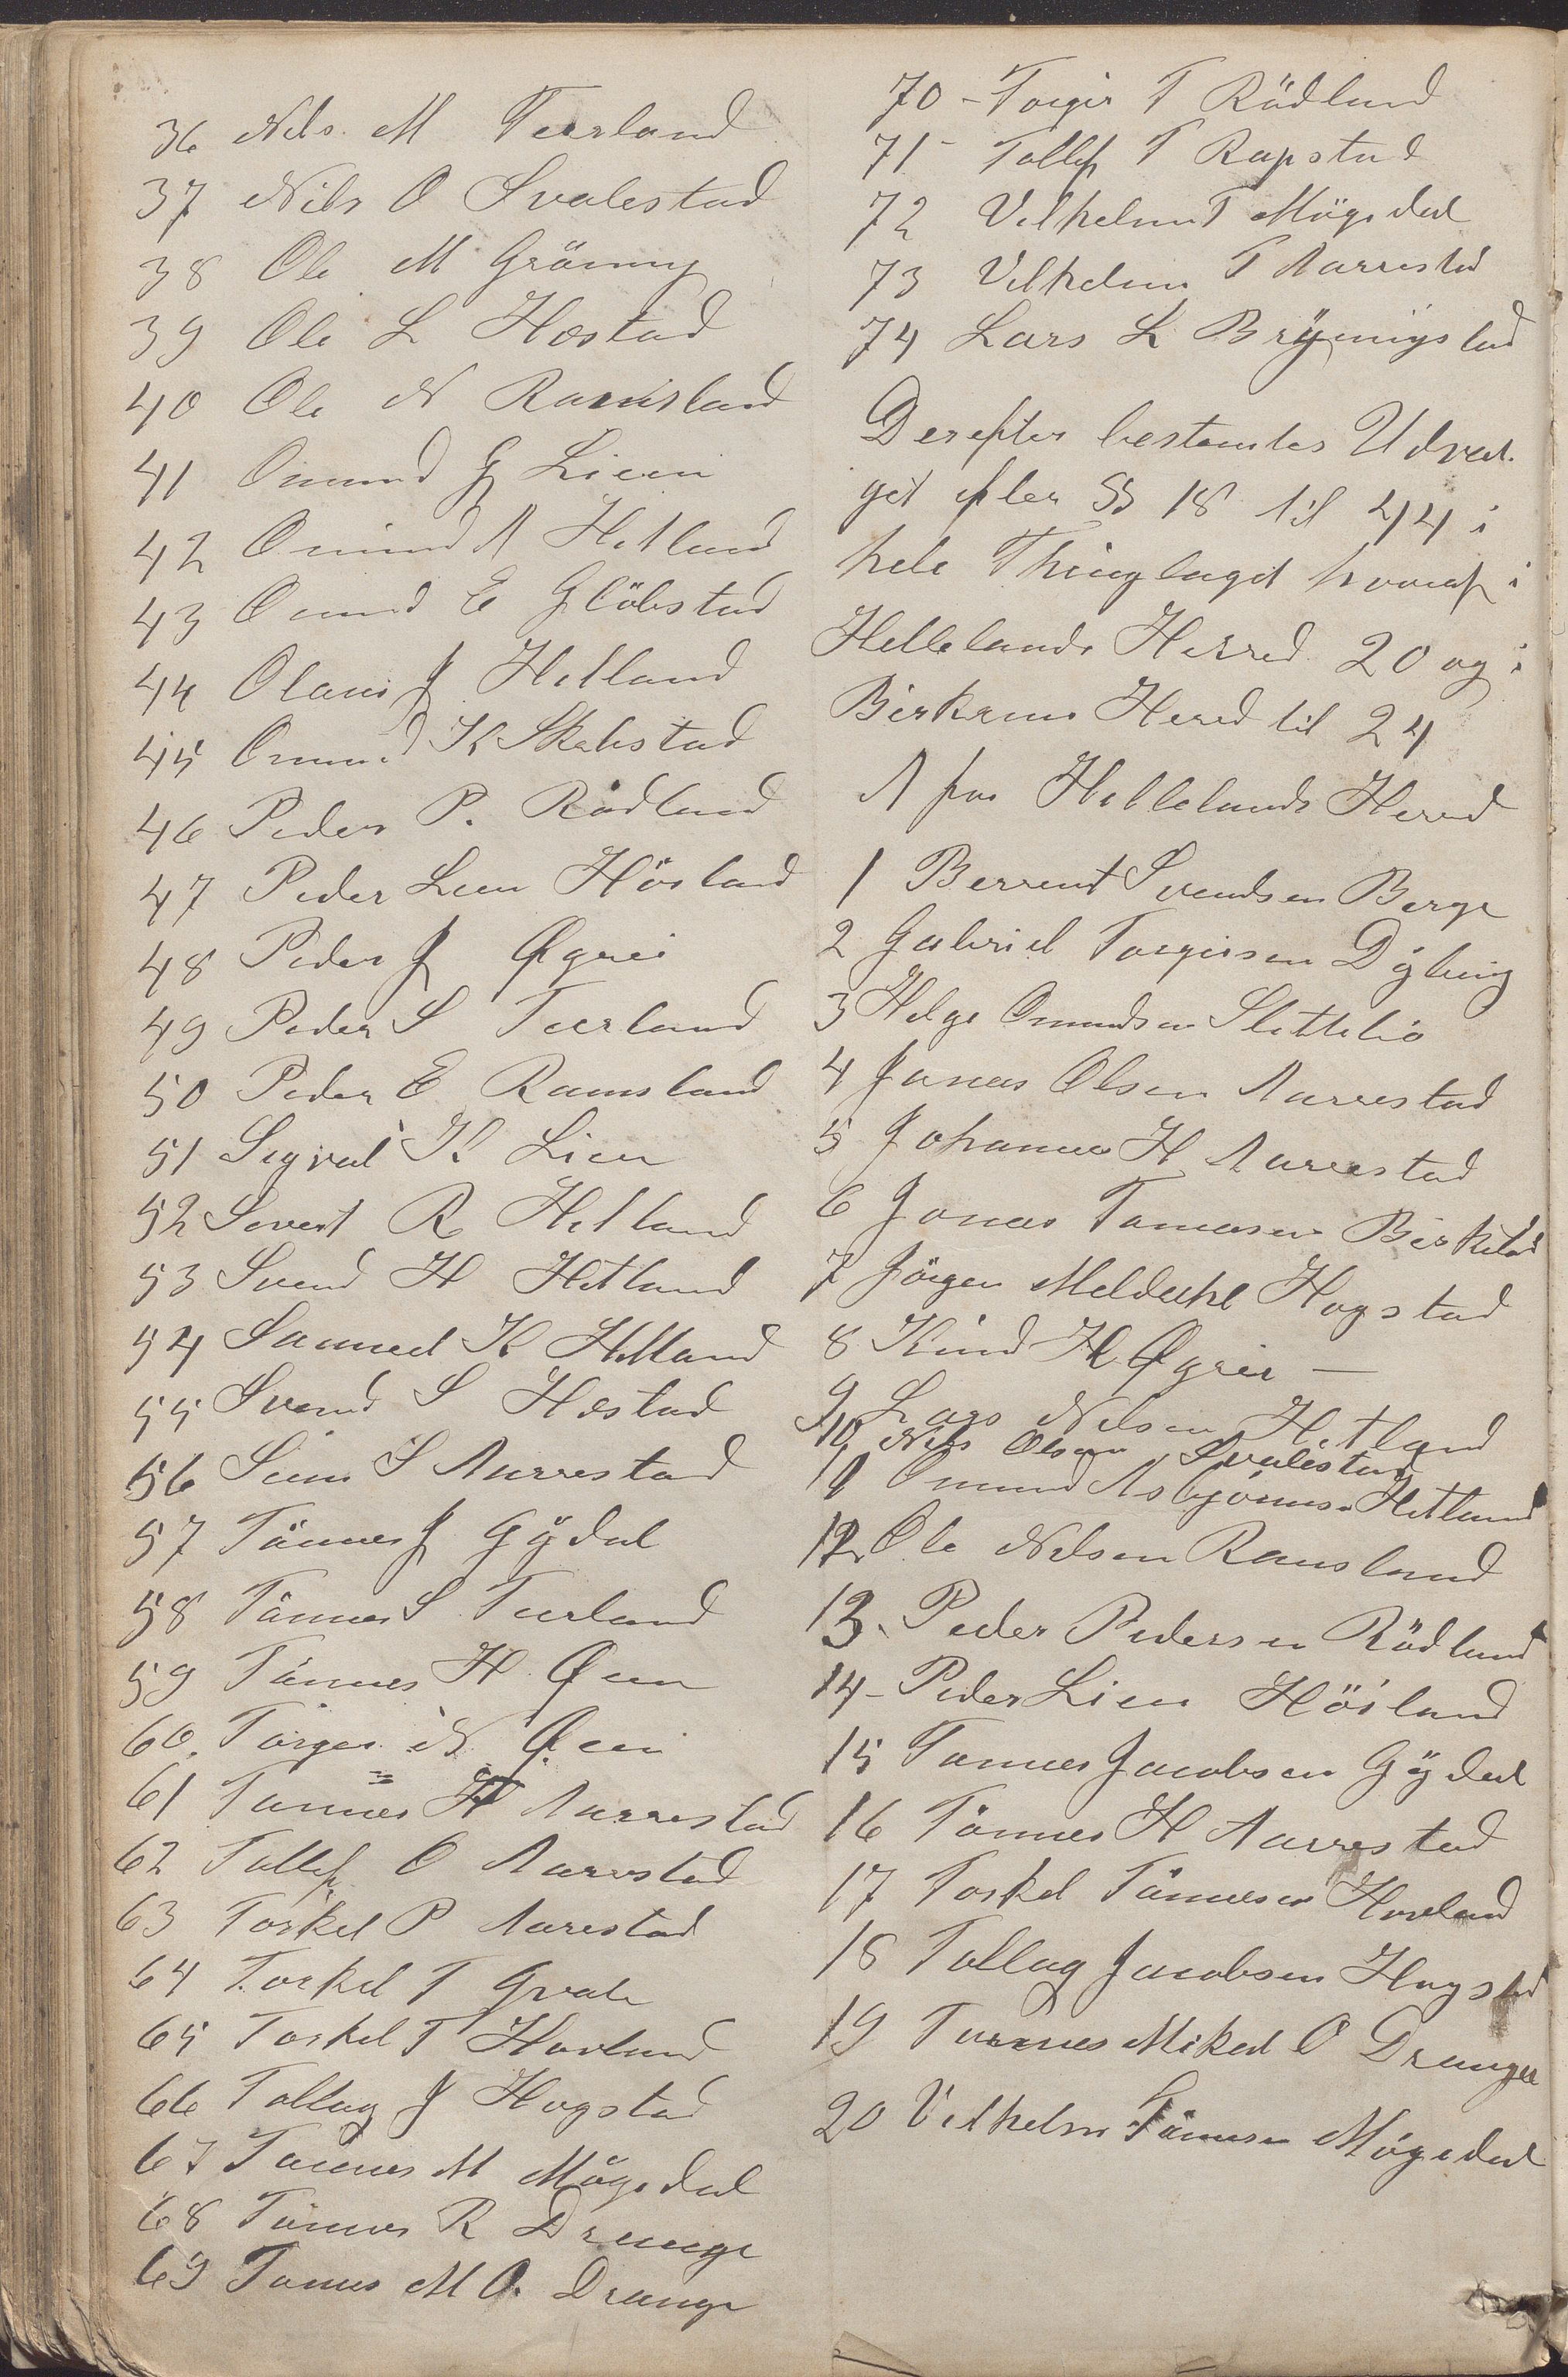 36 Nils. M Teerland
37 Nils O Svalestad
38 Ole M Gröning
39 Ole L Hæstad
40 Ole N Ramsland
41 Omund G Lien
42 Omund A Hetland
43 Omund E Glöbstad
44 Olaus J Hetland
45 Omund K Skabstad
46 Peder P. Rödland
47 Peder Lien Hösland
48 Peder J Øgrei
49 Peder S Teerland
50 Peder E Ramsland
51 Sigval K Lien
52 Sivert R Hetland
53 Svend H Hetland
54 Samuel K Hetland
55 Svend S Hæstad
56 S Aarrestad
57 Tönnes J Gÿdal
58 Tönnes S Teerland
59 Tönnes H. Øen
60. Torger N Øen
61 Tönnes H Aarrestad
62 Tollef O Aarrestad
63 Torkel P Aarestad
64 Torkel T Qvale
65 Torkel T Hovland
66 Tollag J Hogstad
67 Tönnes M Mögedal
68 Tönnes R Drange
69 Tønnes M O. Drange
70 - Torger T Rödland
71 - Tollef T Rapstad
72 Vilhelm T Mögedal
73 Vilhelm T Aarrestad
74 Lars L Brÿnnigstad
Derefter bestemtes Udval-
get efter §§ 18 til 44 i
hele Thinglaget hvoraf i
Hellelands Herred 20 og i
Birkrems Herred til 24
A for Hellelands Herred
1 Berrent Svendsen Berge
2 Gabriel Torgersen Dÿbing
3 Helge Omundsen Slettelid
4 Jonas Olsen Aarrestad
5 Johannes H Aarrestad
6 Jonas Tønnesen Birkeland
7 Jörgen Meldahl Hogstad
8 Knud H Øgrei —
9 Lars Nilsen Hetland
10 Nils Olsen Svalestad
11 Omund Asbjörnsen Hetland
12 Ole Nilsen Ramsland
13. Peder Pedersen Rödland
14 - Peder Lien Hösland
15 Tønnes Jacobsen Gÿdal
16 Tönnes H Aarrestad
17 Torkel Tönnesen Hovland
18 Tollag Jacobsen Hogstad
19 Tønnes Mikal O Drange
20 Vilhelm Tönnesen Mögedal